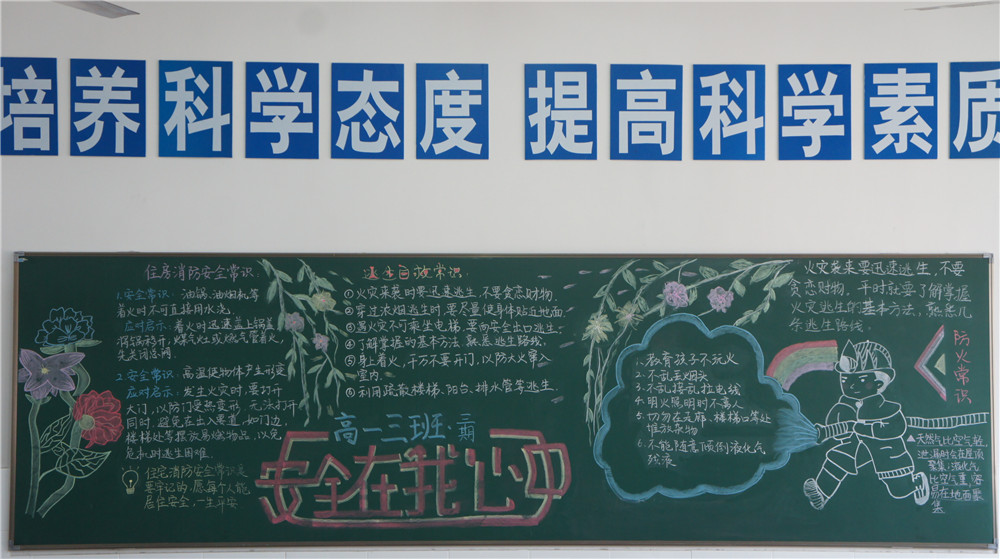 培养科学态度 提高科学素质
住房消防安全常识:
1.安全常识: 油锅、油烟机等
着火时不可直接用水浇。
应对启示: 着火时迅速盖上锅盖
将锅移开,煤气灶或燃气管着火,
先关阀门
2.安全常识: 高温使物体产生形变
应对启示: 发生火灾时,要打开
大门,以防门受热变形,无法打开
同时,避免在出入要道,如门边、
楼梯处等摆放易燃物品,以免
危机时逃生困难.
住宅消防安全常识是
要牢记的,愿每个人能
居住安全,一生平安
基本自救常识:
①火灾来袭时要迅速逃生,不要贪恋财物.
②穿过浓烟逃生时,要尽量使身体贴近地面.
③遇火灾不可乘坐电梯,要向安全出口逃生.
④了解掌握的基本方法,熟悉逃生路线.
⑤身上着火,千万不要开门,以防大火窜入
室内.
⑥利用疏散楼梯、阳台、排水管等逃生.
高一三班·三期
安全在我心中
1.教育孩子不玩火
2.不乱丢烟头
3.不乱接乱拉电线
4.明火照明时不离人
5.切勿在走廊、楼梯口等处
堆放杂物
6.不能随意倾倒液化气
残液
火灾袭来要迅速逃生,不要
贪恋财物,平时就要了解掌握
火灾逃生的基本方法,熟悉几
条逃生路线.
防火常识
天然气比空气轻
泄漏时会在屋顶
聚集,液化气
比空气重,容
易在地面聚
集